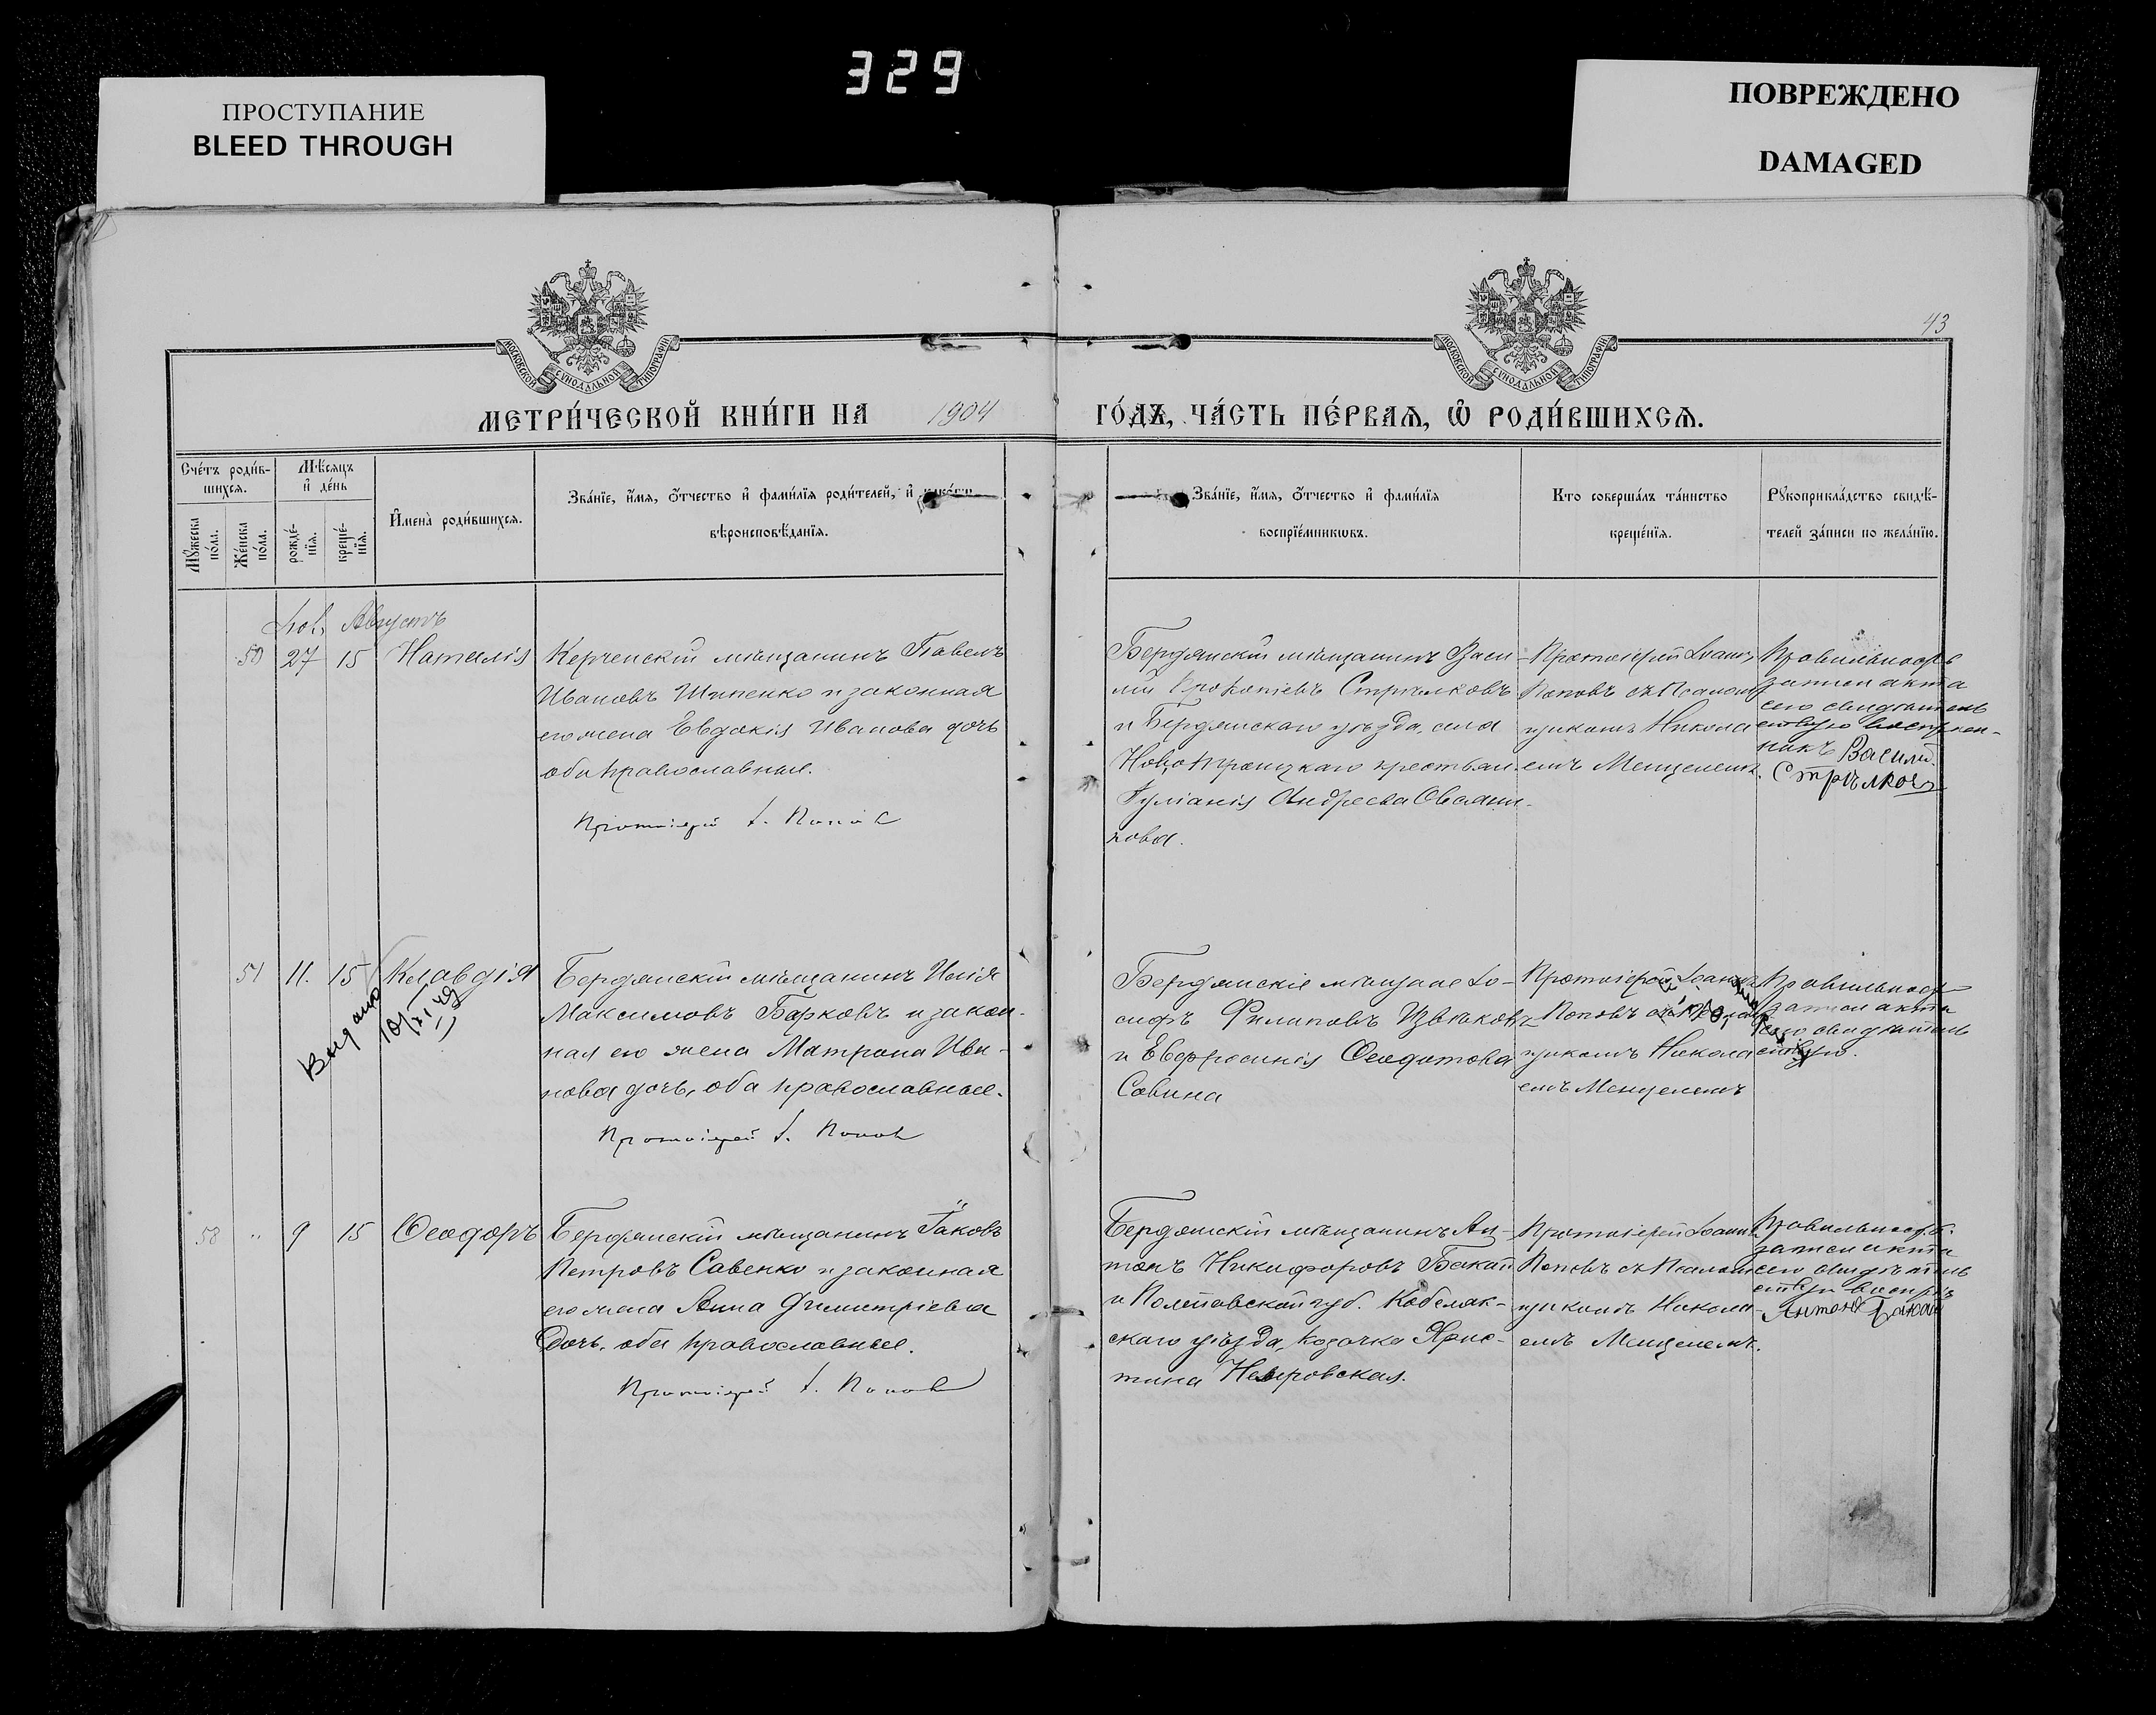 329
ПРОСТУПАНИЕ
BLEED THROUGH
ПОВРЕЖДЕНО
DAMAGED
43
МОСКОВСКОЙ СѴНОДАЛЬНОЙ ТИПОГРАФІИ
МОСКОВСКОЙ СѴНОДАЛЬНОЙ ТИПОГРАФІИ
МЕТРИ́ЧЕСКОЙ КНИ́ГИ НА 1904 ГО́ДЪ, ЧА́СТЬ ПЕ́РВАЯ, Ѡ РОДИ́ВШИХСЯ.
Сче́тъ роди́в-
шихся.
Мѣ́сяцъ
и де́нь
Му́жеска
по́ла.
Же́нска
по́ла.
рожде́-
нїя.
креще́-
нїя.
Имена̀ роди́вшихся.
Зва́нїе, и́мя, о́тчество и фами́лїя роди́телей, и како́гѡ
вѣроисповѣ́данїя.
Зва́нїе, и́мя, о́тчество и фами́лїя
воспрїе́мникѡвъ.
Кто соверша́лъ та́инство
креще́нїя.
Рꙋкоприкла́дство свидѣ́-
телей за́писи по жела́нїю.
Августъ
50 27 15 Наталія
Керченскій мѣщанинъ Павелъ
Ивановъ Шипенко и законная
его жена Евдокія Иванова дочь
оба православные.
Протоіерей І. Попов
Бердянскій мѣщанинъ Васи-
лій Прокопіевъ Стрѣлковъ
и Бердянскаго уѣзда, села
Новотроицкаго крестьян.
Іуліанія Андреева Овсянни-
кова.
Протоіерей Іоаннъ
Поповъ съ Псалом-
щикомъ Никола-
емъ Менцелемъ.
Правильность
записи акта
сего свидѣтель
ствую воспріем-
никъ Василій
Стрѣлковъ
51 11. 15 Клавдія
Выдано
Бердянскій мѣщанинъ Илія
Максимовъ Барковъ и закон-
ная его жена Матрона Ива-
нова дочь, оба православные.
Протоіерей І. Попов
Бердянскіе мѣщане Іо-
сифъ Филиповъ Цвѣтковъ
и Евфросинія Ѳеодотова
Савина
Протоіерей Іоаннъ
Поповъ съ Псалом-
щикомъ Никола-
емъ Менцелемъ
Правильность
записи акта
сего свидѣтель
ствую.
58 " 9 15 Ѳеодоръ
Бердянскій мѣщанинъ Іаковъ
Петровъ Савенко и законная
его жена Анна Димитріева
дочь, оба православные.
Протоіерей І. Попов
Бердянскій мѣщанинъ Ан-
тонъ Никифоровъ Бакай
и Полтавской губ. Кобеляк-
скаго уѣзда, козачка Хрис-
тина
Протоіерей Іоаннъ
Поповъ съ Псалом-
щикомъ Никола-
емъ Менцелемъ.
Правильность
записи акта
сего свидѣтель
ствую воспр.
Антонъ Бакай